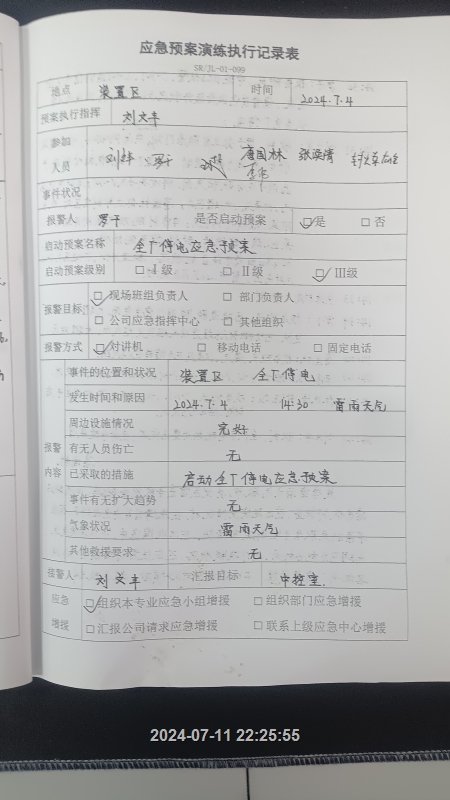 应急预案演练执行记录表
SR/JL-01-099
地点 装置区 时间 2024.7.4
预案执行指挥 刘文丰
参加
人员 罗干 唐国林 张焕清
事件状况
报警人 罗干 是否启动预案 ☑是 □否
启动预案名称 全厂停电应急预案
启动预案级别 □Ⅰ级 □Ⅱ级 ☑Ⅲ级
报警目标 ☑现场班组负责人 □部门负责人
□公司应急指挥中心 □其他组织
报警方式 ☑对讲机 □移动电话 □固定电话
事件的位置和状况 装置区 全厂停电
发生时间和原因 2024.7.4 14:30 雷雨天气
周边设施情况 完好
报警 有无人员伤亡 无
内容 已采取的措施 启动全厂停电应急预案
事件有无扩大趋势 无
气象状况 雷雨天气
其他救援要求 无
接警人 刘文丰 汇报目标 中控室
应急 ☑组织本专业应急小组增援 □组织部门应急增援
增援 □汇报公司请求应急增援 □联系上级应急中心增援
2024-07-11 22:25:55